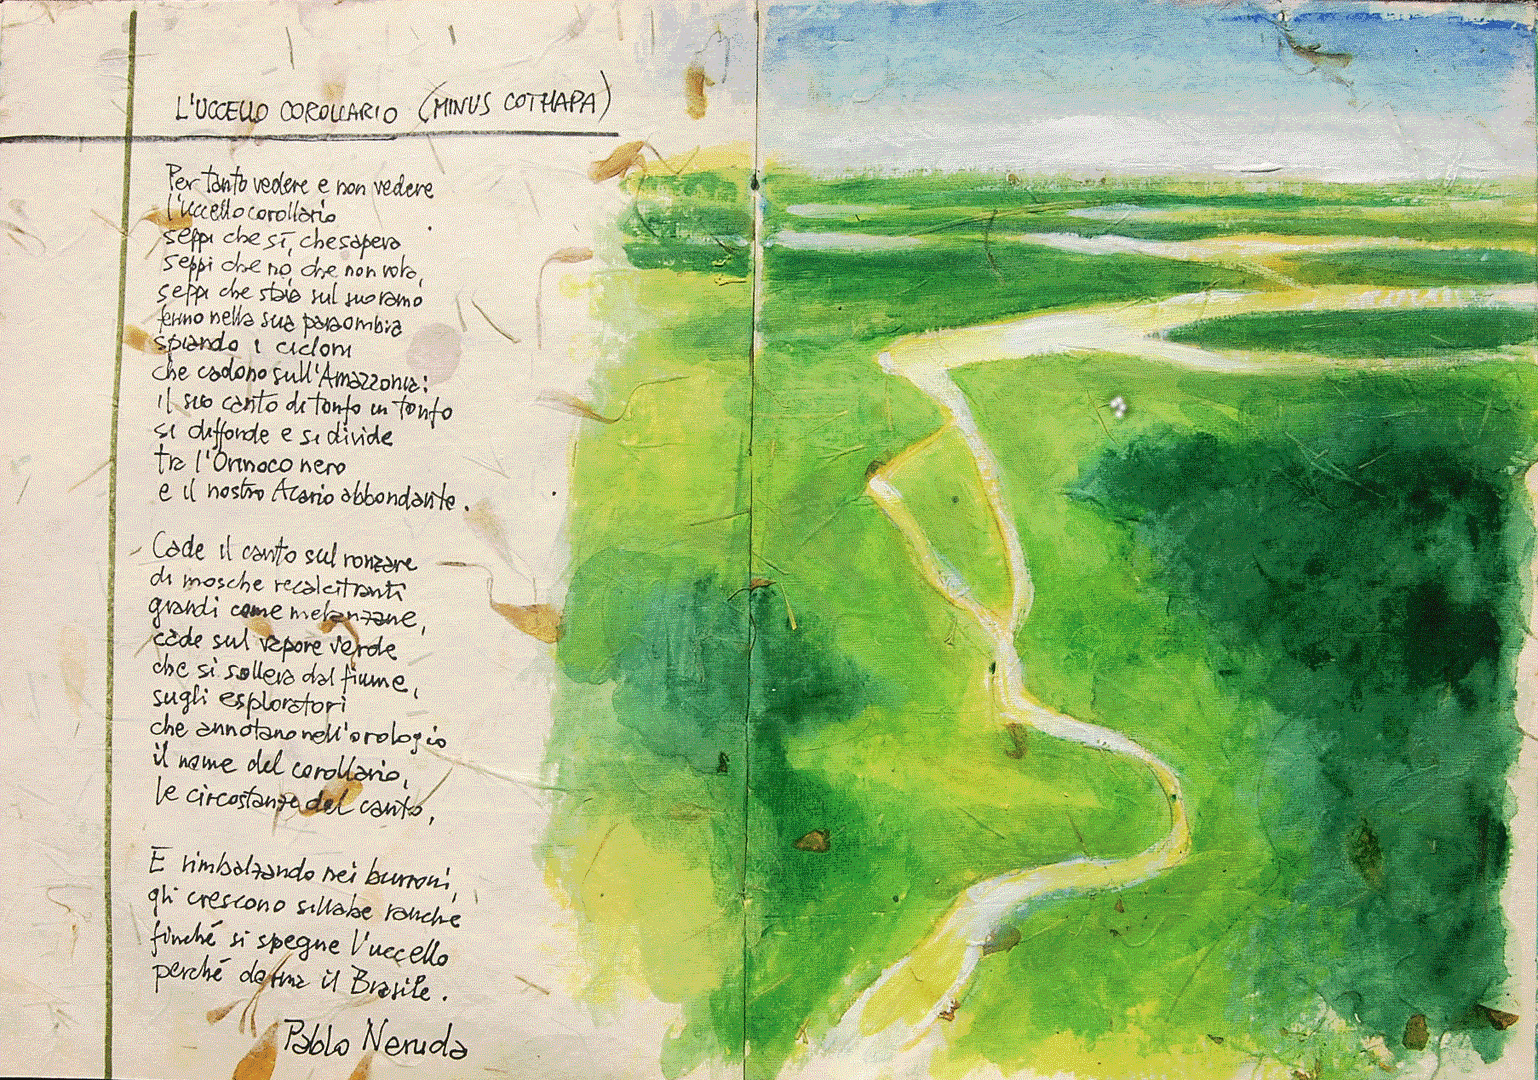 L'UCCELLO COROLLARIO (MINUS COTHAPA)
Per tanto vedere e non vedere
l'uccello corollario
seppi che sì, che sapeva
seppi che no, che non vola,
seppi che stava sul suo ramo
fermo nella sua paraombra
spiando i cicloni
che cadono sull'Amazzonia:
il suo canto di tonfo in tonfo
si diffonde e si divide
tra l'Orinoco nero
e il nostro Acario abbondante.
Cade il canto sul ronzare
di mosche recalcitranti
grandi come melanzane,
cade sul vapore verde
che si solleva dal fiume,
sugli esploratori
che annotano nell'orologio
il nome del corollario,
le circostanze del canto,
E rimbalzando nei burroni,
gli crescono sillabe rauche
finché si spegne l'uccello
perché dorma il Brasile.
Pablo Neruda